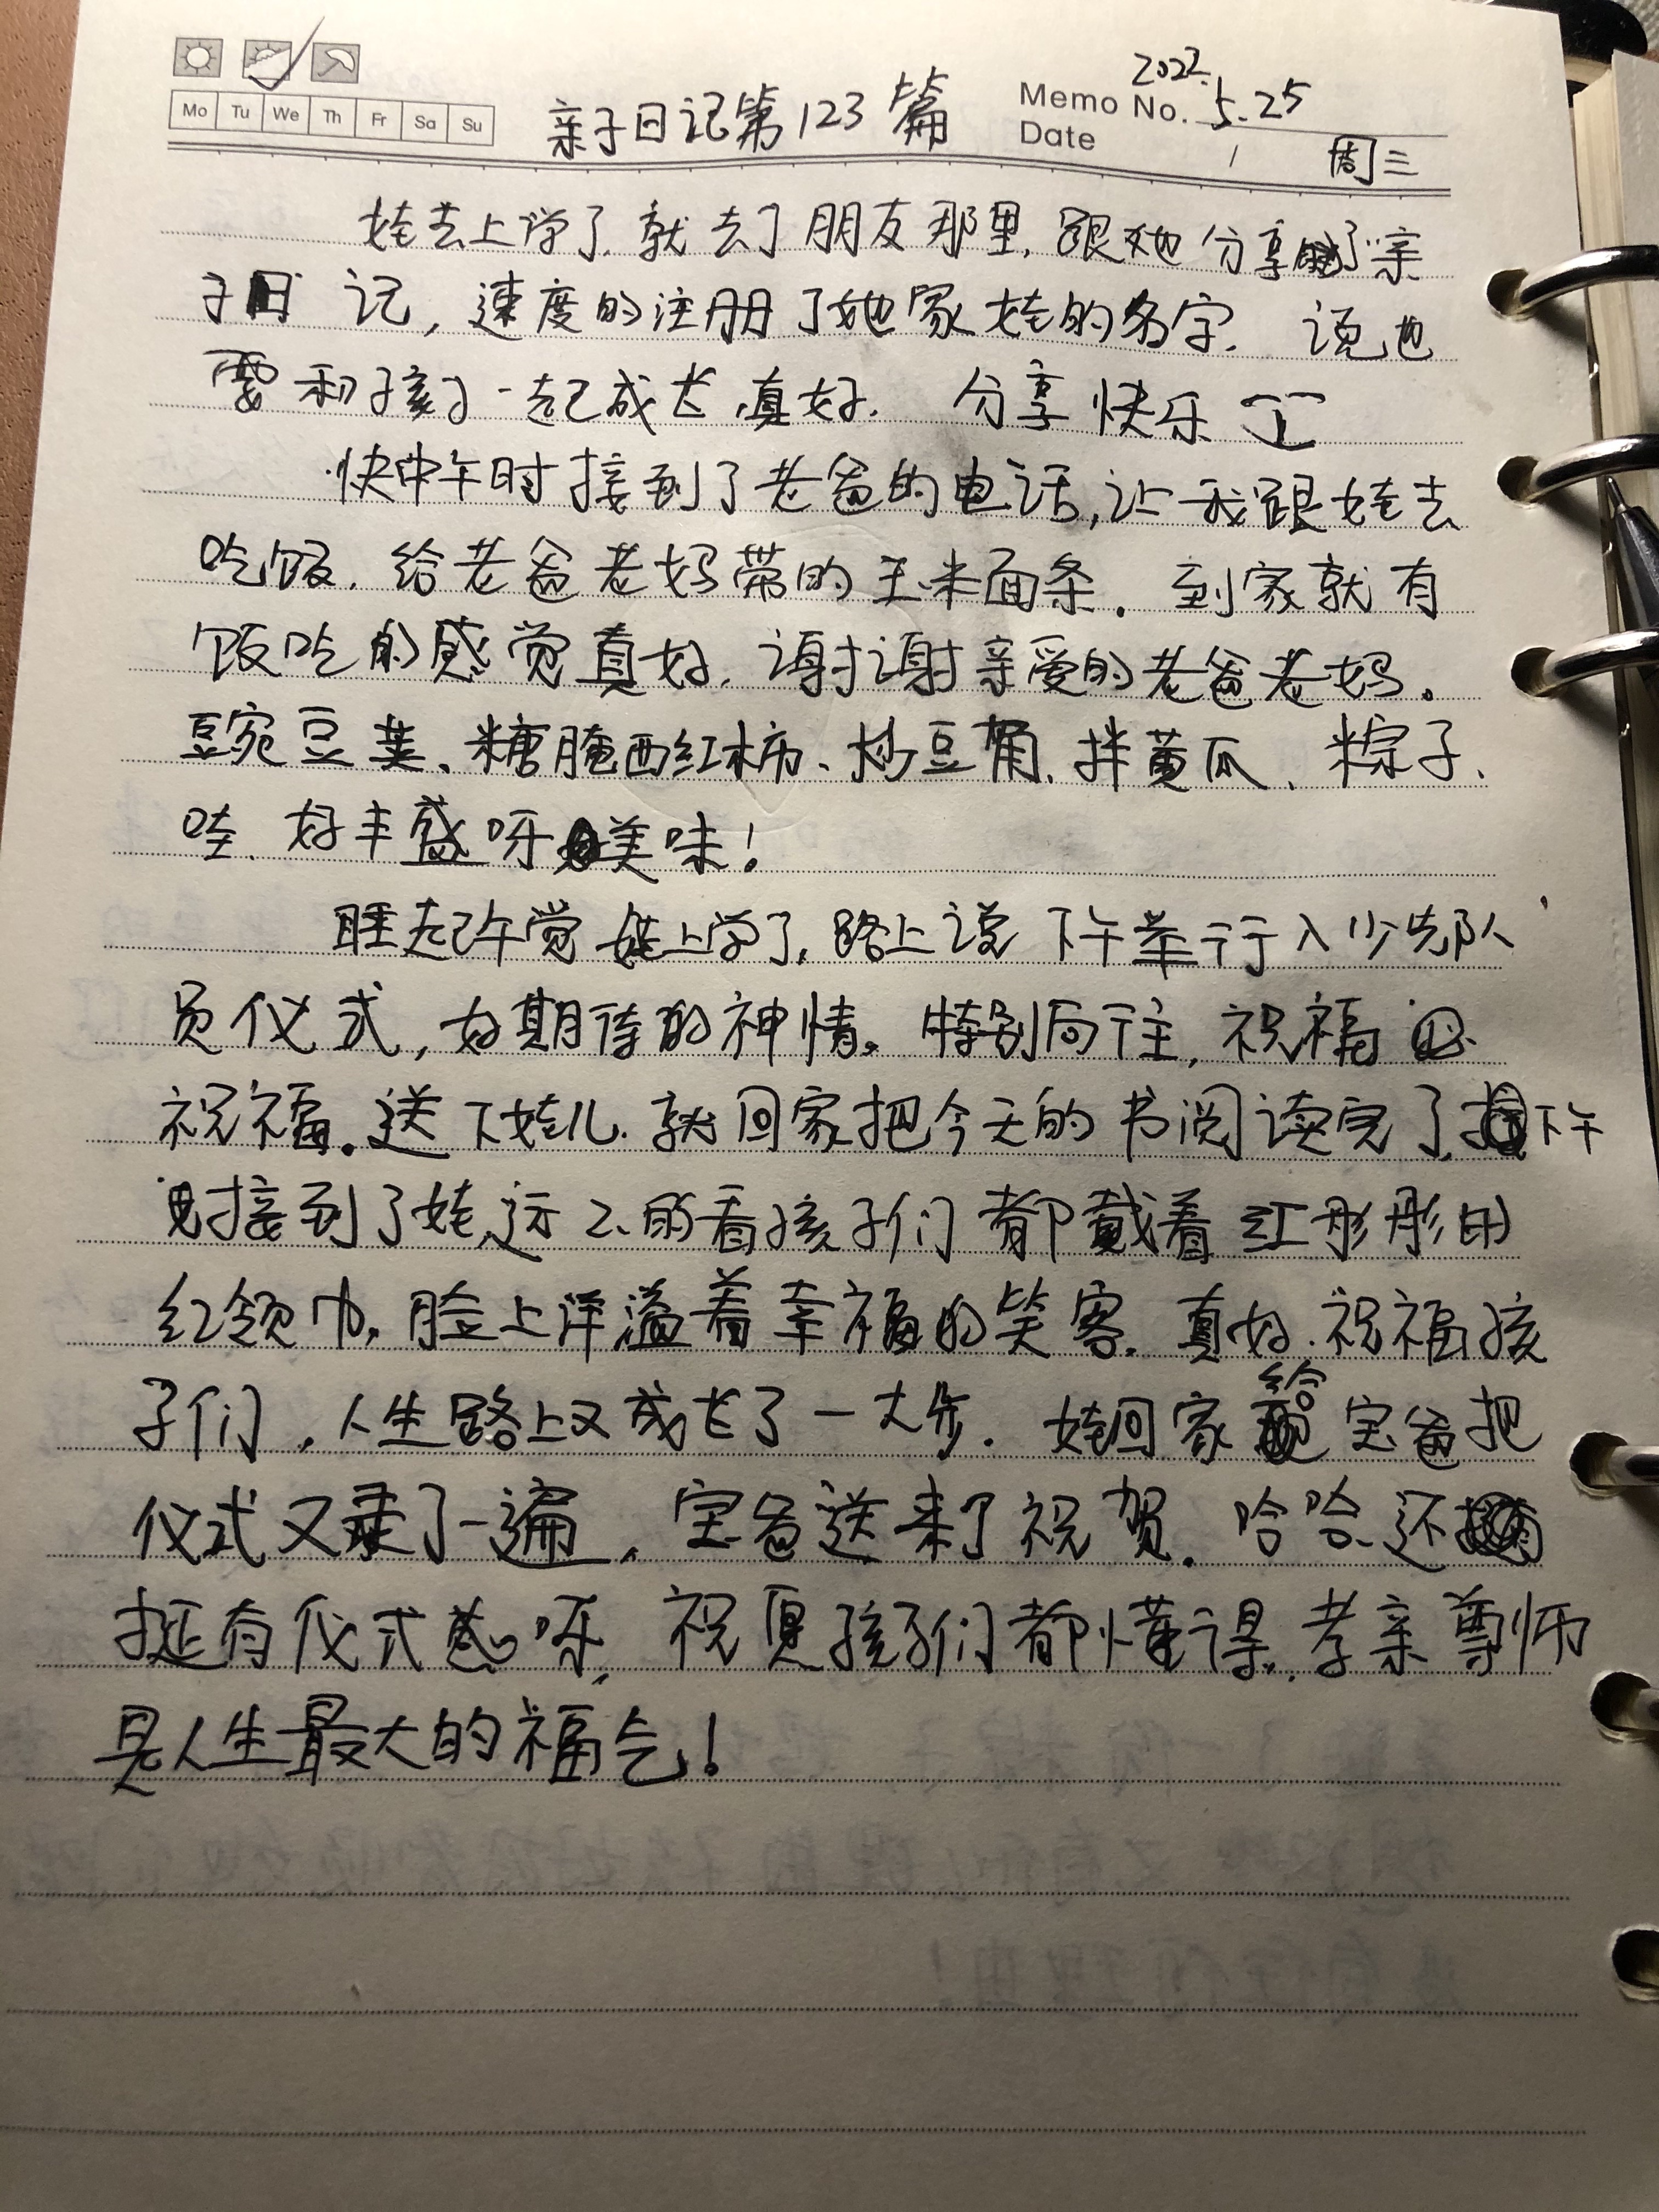 2022.
亲子日记第123篇 Memo No. 5.25
Mo Tu We Th Fr Sa Su
Date 周三
娃去上学了.就去了朋友那里.跟她分享了亲
子日记,速度的注册了她家娃的名字.说也
要和孩子一起成长,真好.分享快乐
快中午时接到了老爸的电话,让我跟娃去
吃饭.给老爸老妈带的玉米面条.到家就有
饭吃的感觉真好.谢谢亲爱的老爸老妈.
豌豆荚、糖腌西红柿、炒豆角、拌黄瓜、粽子、
哇.好丰盛呀美味!
睡起午觉娃上学了.路上说下午举行入少先队
员仪式,好期待的神情.特别向往,祝福
祝福.送下娃儿.就回家把今天的书阅读完了.下午
时接到了娃,远远的看孩子们都戴着红彤彤的
红领巾,脸上洋溢着幸福的笑容.真好.祝福孩
子们,人生路上又成长了一大步.娃回家给宝爸把
仪式又来了一遍,宝爸送来了祝贺.哈哈、还
挺有仪式感呀,祝愿孩子们都懂得,孝亲尊师
是人生最大的福气!